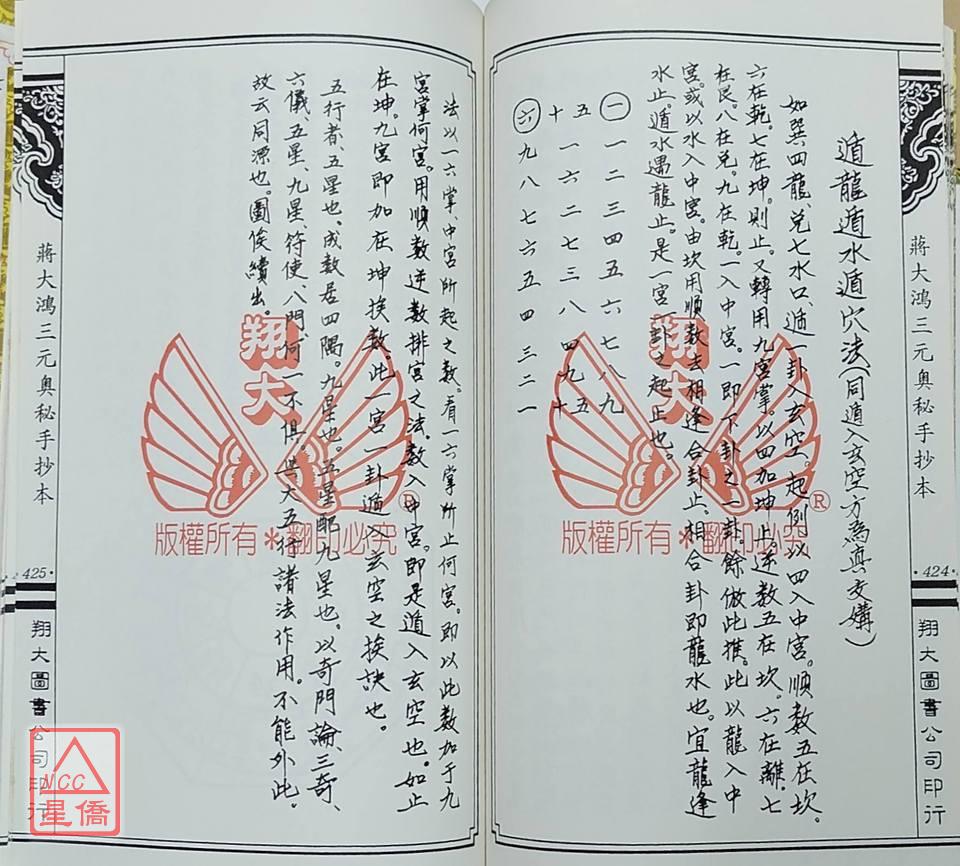 蔣大鴻三元奧秘手抄本
·424·
翔大圖書公司印行
遁龍遁水遁穴法(同遁入玄空方為真交媾)
如巽四龍、兌七水口、遁一卦入玄空。起例以四入中宮。順數五在坎。
六在乾。七在坤。則止。又轉用九宮掌。以四加坤上。逆數五在坎。六在離。七
在艮。八在兌。九在乾。一入中宮。一即下卦之一卦。餘倣此推。此以龍入中
宮。或以水入中宮。由坎用順數去相逢合卦止、相合卦即龍水也。宜龍逢
水止。遁水遇龍止。是一宮一卦之起止也。
一 一二三四五六七八九
五十 一六二七三八四九 五十
六 九八七六五四三二一
翔大
®
版權所有*翻印必究
法以一六掌、中宮所起之數。看一六掌所止何宮。即以此數加于九
宮掌何宮。用順數逆數排宮之法。數入中宮。即是遁入玄空也。如止
在坤。九宮即加在坤挨數。此一宮一卦遁入玄空之挨訣也。
五行者、五星也。成數居四隅。九星也。五星配九星也。以奇門論、三奇、
六儀、五星、九星符使、八門、何一不俱。供大五行諸法作用。不能外此。
故云同源也。圖俟續出。
翔大
®
版權所有*翻印必究
蔣大鴻三元奧秘手抄本
·425·
翔大圖書公司印行
NCC
星僑